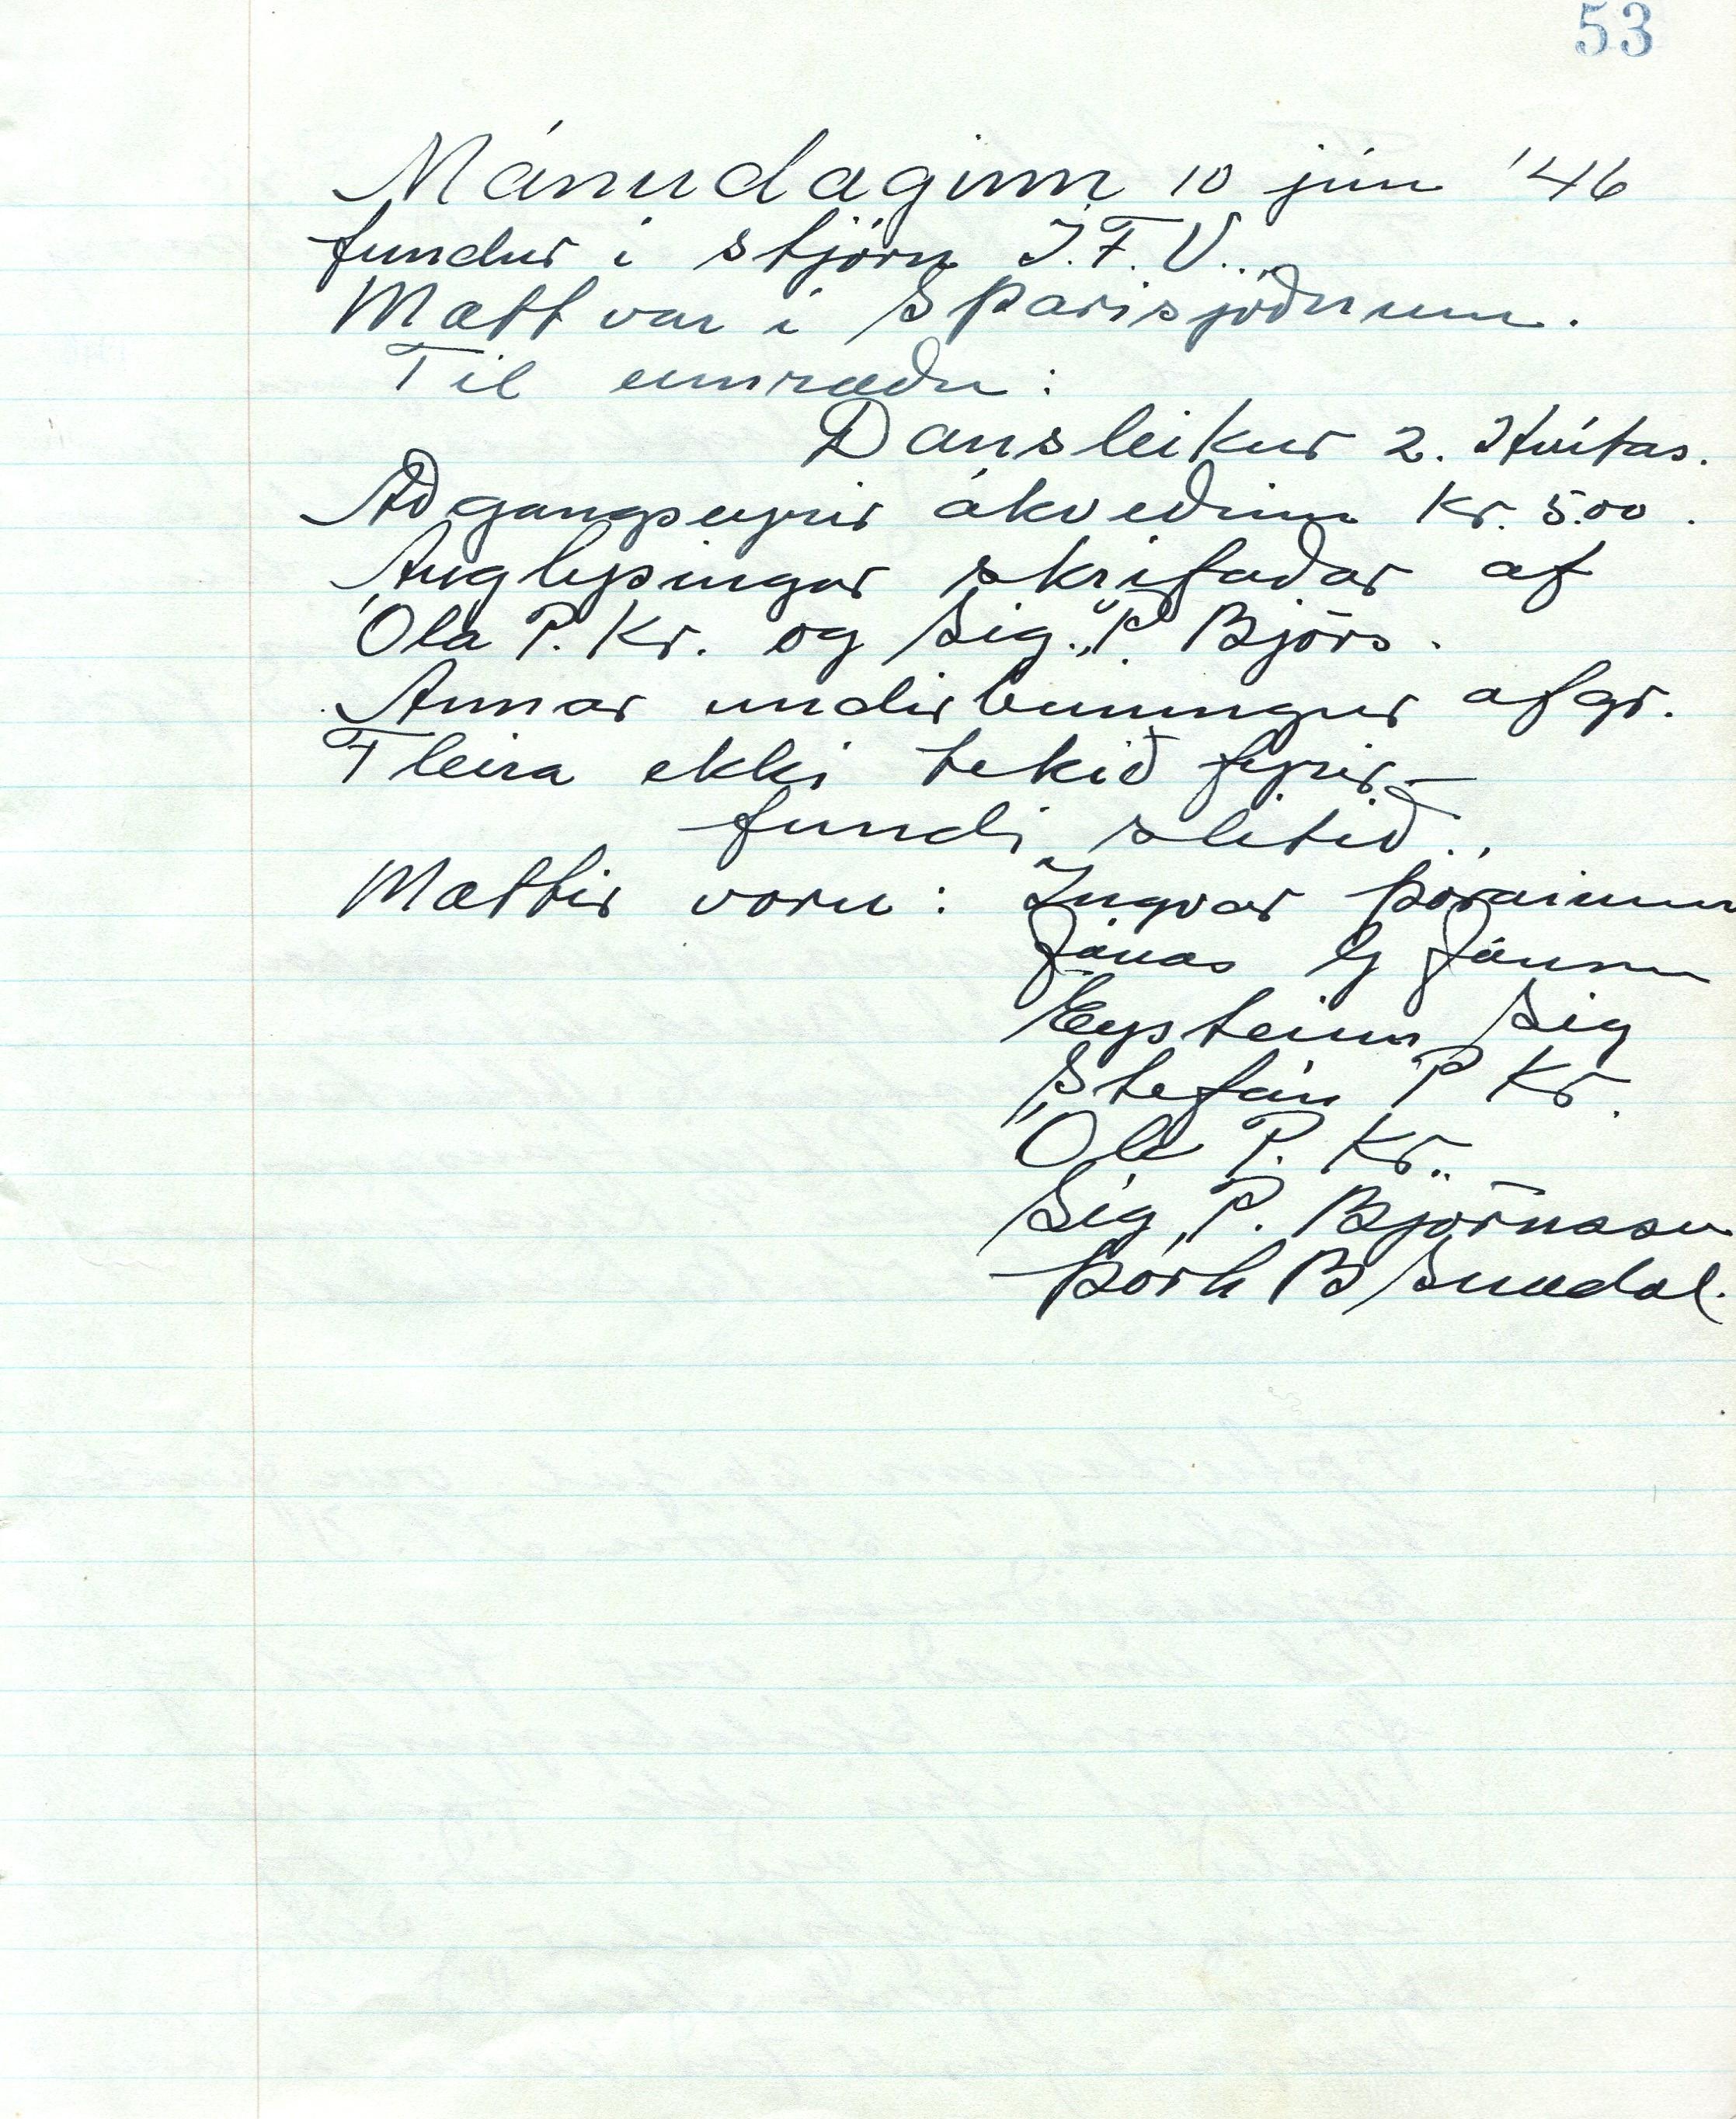 53
Mánudaginn 10 jún '46
fundur i stjórn I.F.V..
Mætt var i Sparisjóðnum.
Til umræðu:
Dansleikur 2. Hvítas.
Aðgangseyrir ákveðinn Kr. 5.00.
Auglýsingar skrifaðar af
Óla P. Kr. og Sig. P. Björs.
Annar undirbuningur afgr.
Fleira ekki tekið fyrir –
fundi slitið..
Mættir voru: Ingvar Þórarinn
Jónas G Jónsson
Eysteinn Sig
Stefán P Kr.
Óli P. Kr..
Sig. P. Björnsson
Þórh B Snædal.